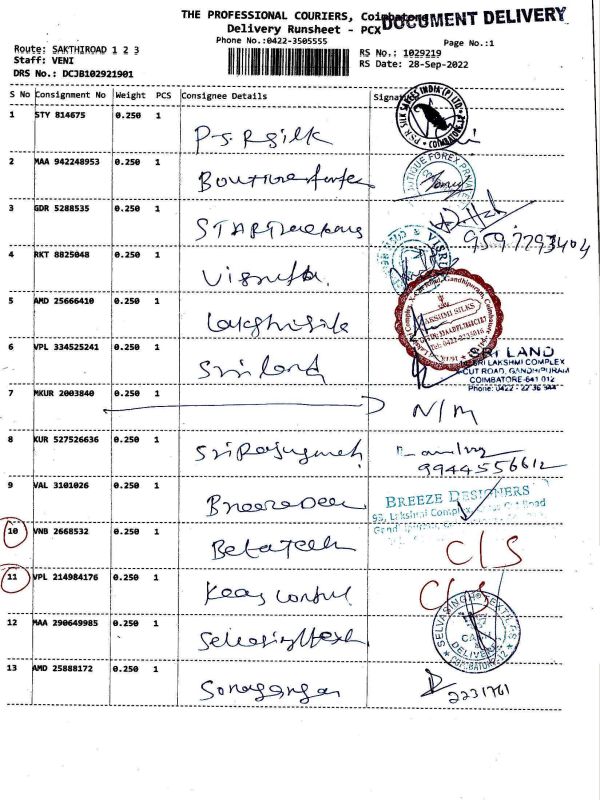 THE PROFESSIONAL COURIERS, Coimbatore
DOCUMENT DELIVERY
Delivery Runsheet - PCX
Phone No.:0422-3505555
Page No.:1
Route: SAKTHIROAD 1 2 3
RS No.: 1029219
Staff: VENI
RS Date: 28-Sep-2022
DRS No.: DCJB102921901
S No Consignment No Weight PCS Consignee Details Signature
1 STY 814675 0.250 1 P.S.R silk
PSR SILK SAREES INDIA (P) LTD COIMBATORE
2 MAA 942248953 0.250 1
BOUTIQUE FOREX PRIVATE
3 GDR 5288535 0.250 1
9597293404
4 RKT 8825048 0.250 1
5 AMD 25666410 0.250 1 Lakshmi silk
LAKSHMI SILKS
6 VPL 334525241 0.250 1 Sri land
SRI LAND
SRI LAKSHMI COMPLEX
CUT ROAD, GANDHIPURAM
COIMBATORE-641 012
Phone: 0422 - 22 36 944
7 MKUR 2003840 0.250 1 N/M
8 KUR 527526636 0.250 1
9944556612
9 VAL 3101026 0.250 1
BREEZE DESIGNERS
93, Lakshmi Complex, Cut Road
10 VNB 2668532 0.250 1 Betatech C/S
11 VPL 214984176 0.250 1 C/S
12 MAA 290649985 0.250 1
SELVASINGH TEXTILES COIMBATORE-12
13 AMD 25888172 0.250 1
2231761